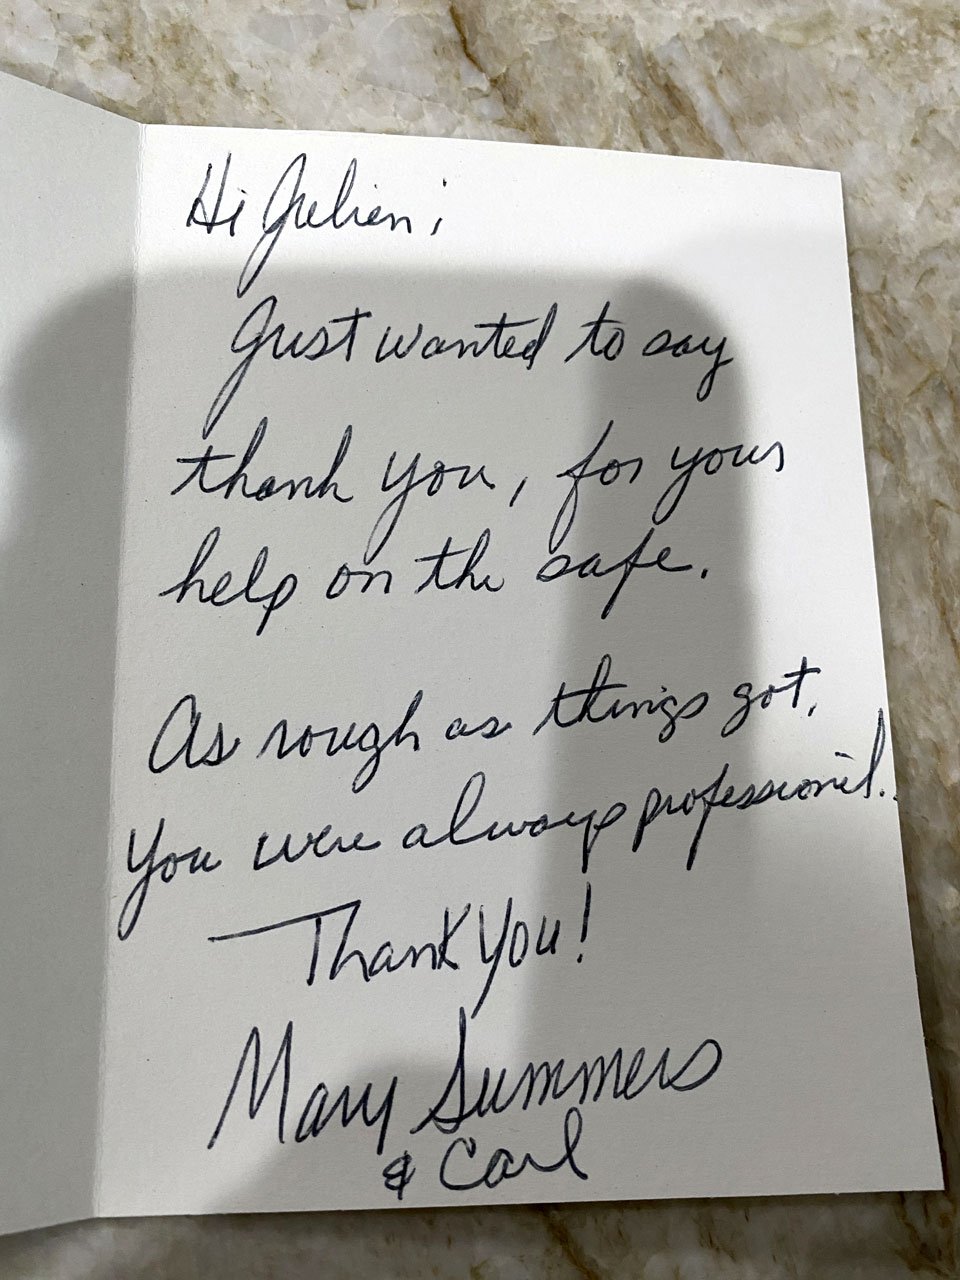 Hi Julien;
Just wanted to say
thank you, for your
help on the safe.
As rough as things got,
You were always professional.
Thank You!
Mary Summers
& Carl